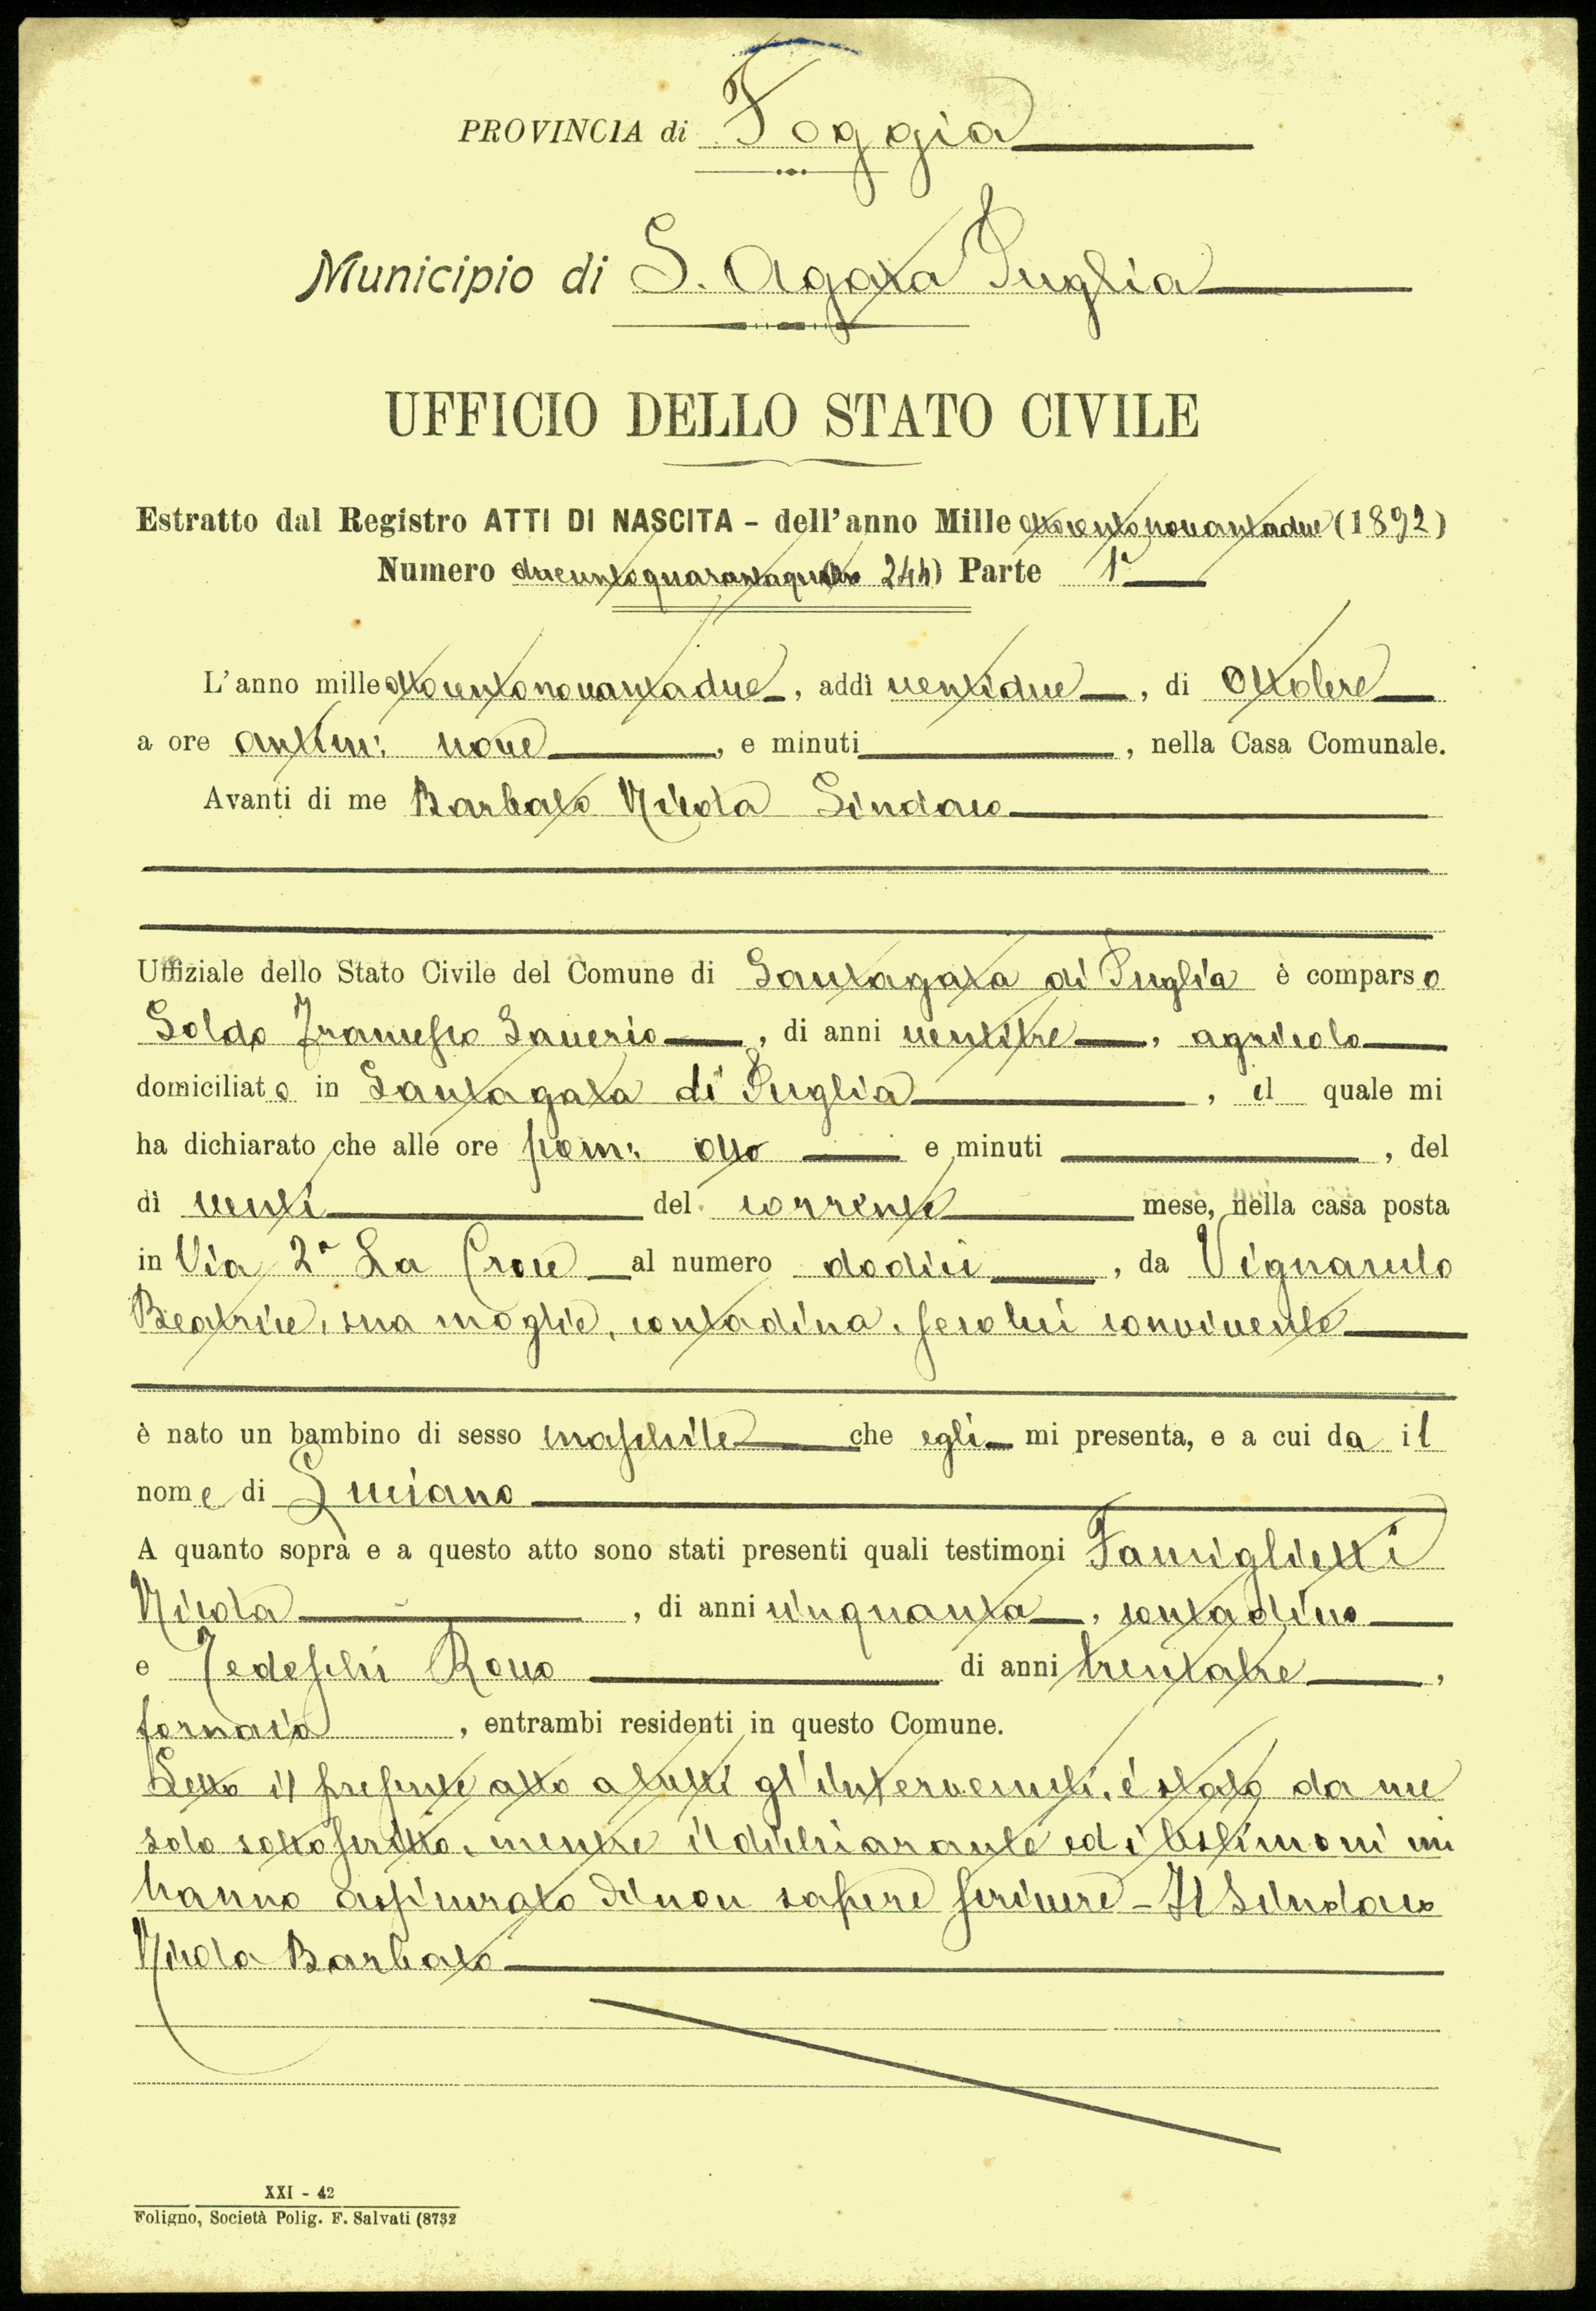 PROVINCIA di Foggia
Municipio di S. Agata Puglia
UFFICIO DELLO STATO CIVILE
Estratto dal Registro ATTI DI NASCITA - dell'anno Mille ottocentonovantadue (1892)
Numero duecentoquarantaquattro 244) Parte 1ª
L'anno mille ottocentonovantadue, addì ventidue, di Ottobre
a ore antim: nove, e minuti , nella Casa Comunale.
Avanti di me Barbato Nicola Sindaco
Uffiziale dello Stato Civile del Comune di Santagata di Puglia è comparso
Soldo Francesco Saverio, di anni ventitre, agricolo
domiciliato in Santagata di Puglia, il quale mi
ha dichiarato che alle ore pom: otto e minuti , del
dì venti del corrente mese, nella casa posta
in Via 2ª La Croce al numero dodici, da Vignaruolo
Beatrice, sua moglie, contadina, seco lui convivente
è nato un bambino di sesso maschile che egli mi presenta, e a cui da il
nome di Luciano
A quanto sopra e a questo atto sono stati presenti quali testimoni Famiglietti
Nicola, di anni cinquanta, contadino
e Tedeschi Rocco di anni trentatre,
fornaio, entrambi residenti in questo Comune.
Letto il presente atto a tutti gl'intervenuti, è stato da me
solo sottoscritto, mentre il dichiarante ed i testimoni mi
hanno assicurato di non sapere scrivere - Il Sindaco
Nicola Barbato
XXI - 42
Foligno, Società Polig. F. Salvati (8732